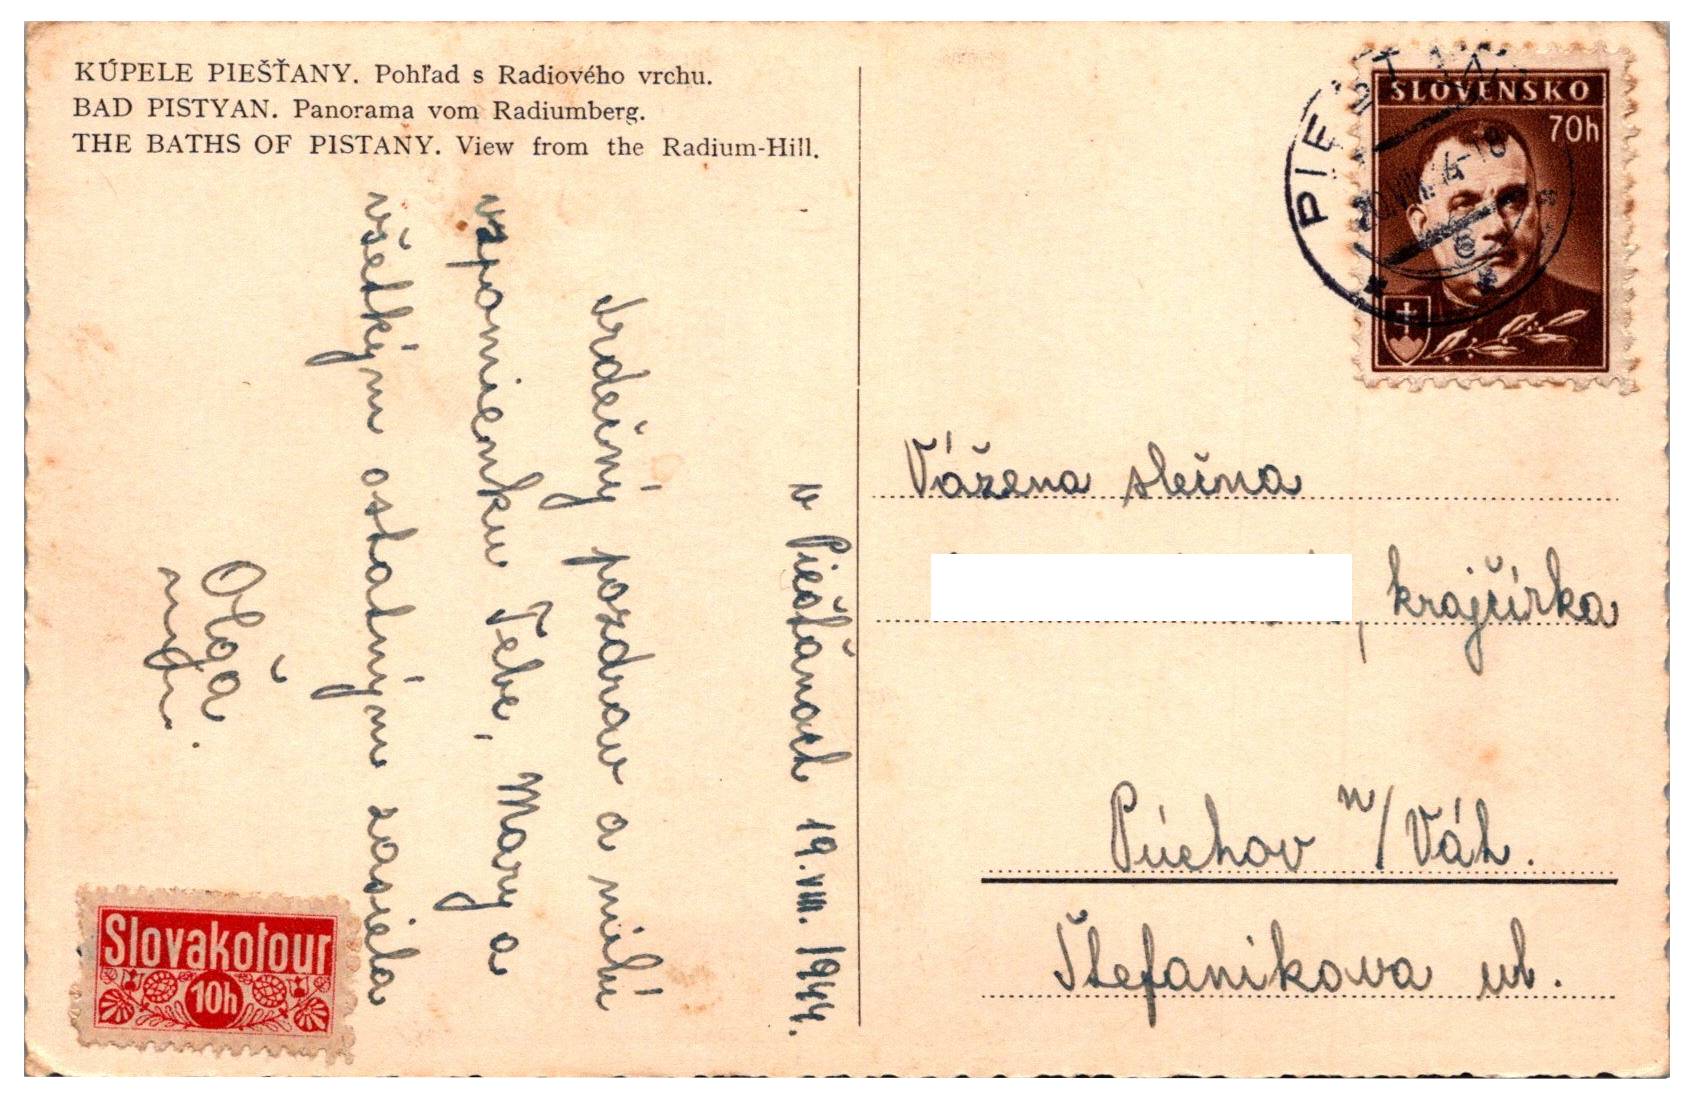 KÚPELE PIEŠŤANY. Pohľad s Radiového vrchu.
BAD PISTYAN. Panorama vom Radiumberg.
THE BATHS OF PISTANY. View from the Radium-Hill.
v Piešťanoch 19.VIII. 1944.
Srdečný pozdrav a milú
vzpomienku Tebe, Mary a
všetkým ostatným zasiela
Olga
SLOVENSKO
70h
PIEŠŤANY
Vážena slečna
, krajčírka
Púchov n/Váh.
Štefanikova ul.
Slovakotour
10h